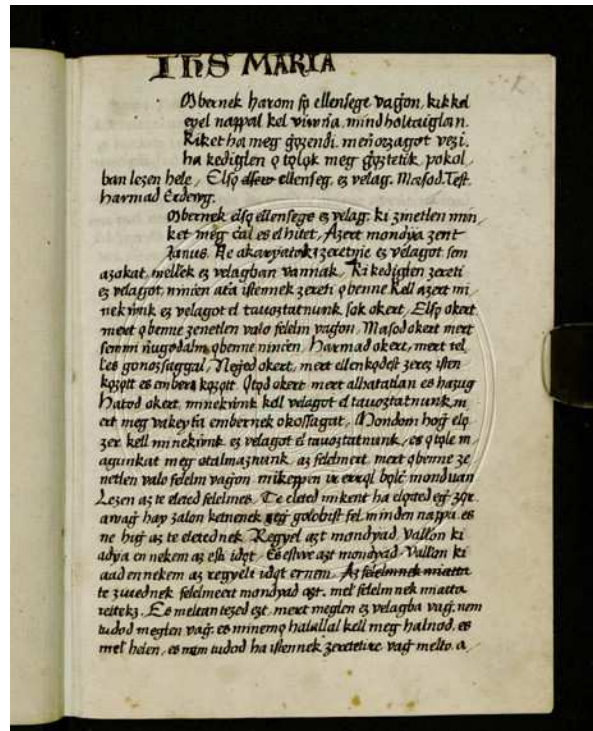 IhS MARIA
Mbernek harom fǫ ellensege vaǵon, kikkel
eyel nappal kel viwńa, mind holtaiglan.
Kiket ha meg ǵǫzendi, meńorzagot vezi,
ha kediglen ǫ tǫlǫk meg ǵǫztetik, pokol
ban lezen hele, Elsǫ ellenseg, ez velag. Masod. Test.
harmad Erdewg.
Mbernek elsǫ ellensege ez velag, ki zmetlen min
ket meg čal es el hitet, Azert mondya zent
Janus. Ne akaryatok zeretnie ez velagot sem
azokat, mellek ez velagban vannak, Ki kediglen zereti
ez velagot, ninčen ata istennek zereti ǫ benne Kell azert mi
nekwnk ez velagot el tavoztatnunk sok okert, Elsǫ okert
mert ǫ benne zenetlen valo felelm vaǵon, Masod okert mert
semmi ńugodalm ǫ benne ninčen, Harmad okert, mert tel
les gonossaggal, Neǵed okert, mert ellenkǫdest zerez isten
kǫzǫtt es ember kǫzǫtt. Qtǫd okert mert alhatatlan es hazug
Hatod okert, minekwnk kell velagot el tavoztatnunk m
ert meg vakeyta embernek okossagat, Mondom hoǵ elǫ
zer kell minekwnk ez velagot el tavoztatnunk, es ǫ tǫle m
agunkat meg otalmaznunk, az felelmert, mert ǫ benne ze
netlen valo felelm vaǵon, mikeppen ir errǫl bǫlč monduan
Lezen az te eleted felelmes, Te eleted mikent ha elǫted eǵ zǫr
awaǵ hay zalon kǫtnenek eǵ golobist fel minden nappa, es
ne hiǵ az te eletednek Regyel azt mondyad, Vallon ki
adya en nekem az esti idǫt, Es estwe azt mondyad, Vallon ki
aad ennekem az regyeli idǫt ernem, Az felelmnek miatta
te zuuednek felelmeert mondyad azt, mel felelmnek miatta
reitekz, Es meltan tezed ezt, mert meglen ez velagba vaǵ, nem
tudod meglen vaǵ, es minemǫ halallal kell meg halnod, es
mel helen, es nem tudod ha istennek zeretetire vaǵ melto, a